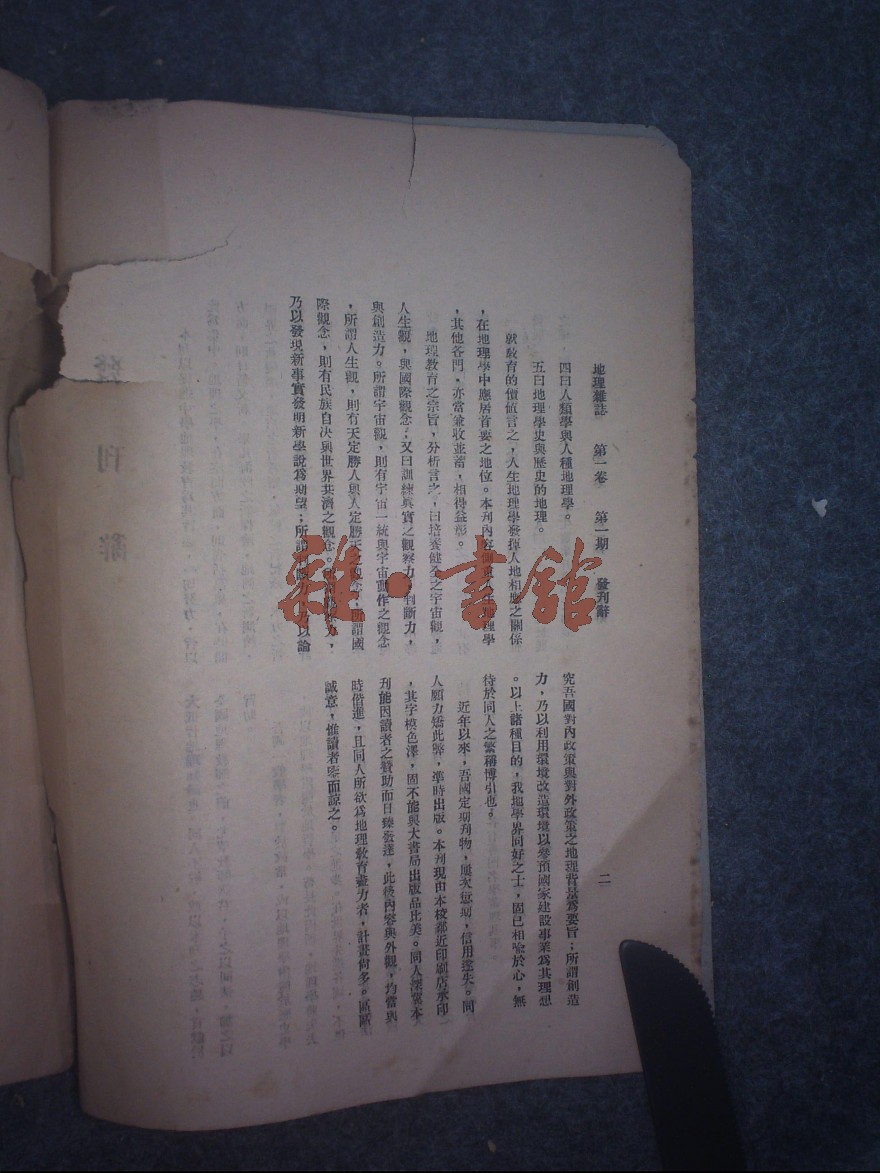 地理雜誌 第一卷 第一期 發刊辭
二
四曰人類學與人種地理學。
五曰地理學史與歷史的地理。
就教育的價値言之,人生地理學發揮人地相應之關係
,在地理學中應居首要之地位。本刊內容側重人生地理學
,其他各門,亦當兼收並蓄,相得益彰。
地理教育之宗旨,分析言之,曰培養健全之宇宙觀,
人生觀,與國際觀念;又曰訓練眞實之觀察力,判斷力,
與創造力。所謂宇宙觀,則有宇宙一統與宇宙動作之觀念
,所謂人生觀,則有天定勝人與人定勝天之觀念,所謂國
際觀念,則有民族自決與世界共濟之觀念。所謂觀察力,
乃以發現新事實發明新學說爲期望;所謂判斷力,乃以論
究吾國對內政策與對外政策之地理背景爲要旨;所謂創造
力,乃以利用環境改造環境以參預國家建設事業爲其理想
。以上諸種目的,我地學界同好之士,固已相喩於心,無
待於同人之繁稱博引也。
近年以來,吾國定期刊物,屢次愆期,信用遂失。同
人願力矯此弊,準時出版。本刊現由本校鄰近印刷店承印
,其字模色澤,固不能與大書局出版品比美。同人深冀本
刊能因讀者之贊助而日臻發達,此後內容與外觀,均當與
時偕進,且同人所欲爲地理敎育盡力者,計畫尙多。區區
誠意,惟讀者鑒而諒之。
雜·書館
刊
辭